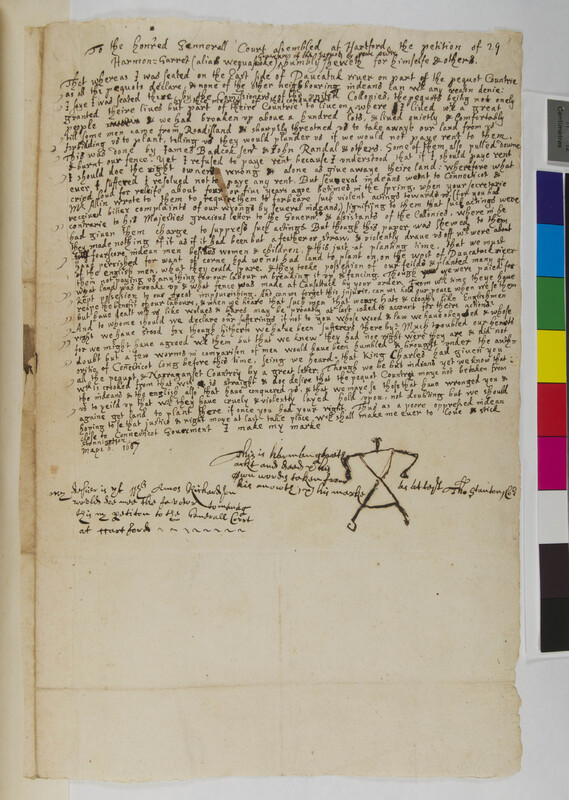 To the honred Gennerell Court assembled at Hartford the petition of 29
Harmon: Garret (alias wequa humbly sheweth for himselfe & others.
That whereas I was seated on the East side of Paucatuk river on part of the pequot Countrie
as all the pequots declare, & none of the other neighbouring indeans can wth any reason denie:
I saye I was seated there, by the Commissioners of the united Collonies, the pequots being not onely
granted theire lives but part of theire Countrie to live on, where I lived wth a great
people & we had broaken up above a hundred lots, & lived quietly & Comfortably
till some men came from Roadisland & sharply threatned us to take away our land from us
forbidding us to plant, telling us they would plunder us if we would not paye rent to them.
This was done by James Badcok senr & John Randal & others. Some of them also pulled downe
& burnt our fence: yet I refused to paye rent because I understood that if I should paye rent
I should doe the right owners wrong & alsoe as give awaye theire land: wherefore what
ever I suffered I refused not to paye any rent. But severall indeans went to Connecticut &
cried for releife about four or five years agoe betimes in the spring, when your secretarie
Mr Allin wrote to them to require them to forbeare such violent actings towards us (for you had
received bitter complaints of our wrongs by severall indeans) signifying to them that such actings were
contrarie to his Majesties gracious letter to the Governrs & assistants of the Collonies. where in he
had given them charge to suppress such actings. But though this paper was shewed to them
they made nothing of it as if it had been but a feather or straw, & violently drave us off wn we were about
fourscore indean men besides women & children, & this just at planting time. that we must
have perished for want of corne had we not had land to plant on, on the west of Paucatuk river
of the english men, what they could spare, & they tooke possession of our feilds & planted many of
them not paying us any thing for our labour in breaking it up & fencing, though we were paied for
what land was broake up & what fence was made at Causattuk by your order. From wch time they have
kept possession to our great impoverishing. Nor can we forget this injurie. can we hold our peace when we se them
recive the benefit of our labours, & when we heare that such men that weare hats & cloaths like Englishmen
but have dealt wth us like wolves & beares may be proudly at last called to account for theire actions.
And to whome should we declare our sufferings if not to you whose word & law we have obeyed & whose
right we have stood for though hitherto we have been sufferers thereby? Much troubled our hearts
for we might have agreed wth them but that we knew they had noe right were they are & did not
doubt but a few worms in comparison of men would have been humbled & brought under the auth-
ority of Conecticot long before this time. seing we heard, that King Charles had given you
all the pequot & Naraganset Countrey by a great letter. Though we be but indeans yet we know that
wch is crooked from that wch is straight & doe desire that the pequot Countrie maye not be taken from
the indeans & the english also that have conquered us, & that we move so those that have wronged you &
us to yeild up that wch they have cruely & violently layed hold upon. not doubting but we should
againe get land to plant there if once you had your right. Thus as a poore oppressed indean
hoping also that justice & right maye at last take place, wch shall make me ever to love & stick
close to Connecticut Goverment I make my marke
Stonington.
Maye 6. 1667
This is harmon garrats
ackt and deed & by
owne words taken from
his mouth & his marke as attest Tho Stanton,
my desier is yt Amos Richardson
would doe mee the favour to
this my petiton to the Generall Cort
at Hartford